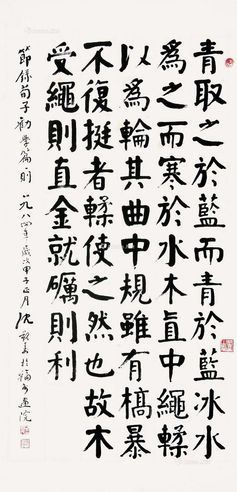 青取之於藍而青於藍冰水
爲之而寒於水木直中繩輮
以爲輪其曲中規雖有槁暴
不復挺者輮使之然也故木
受繩則直金就礪則利
節錄荀子勸學篇一則 一九八四年歲次甲子正月 沈 於福州畫院